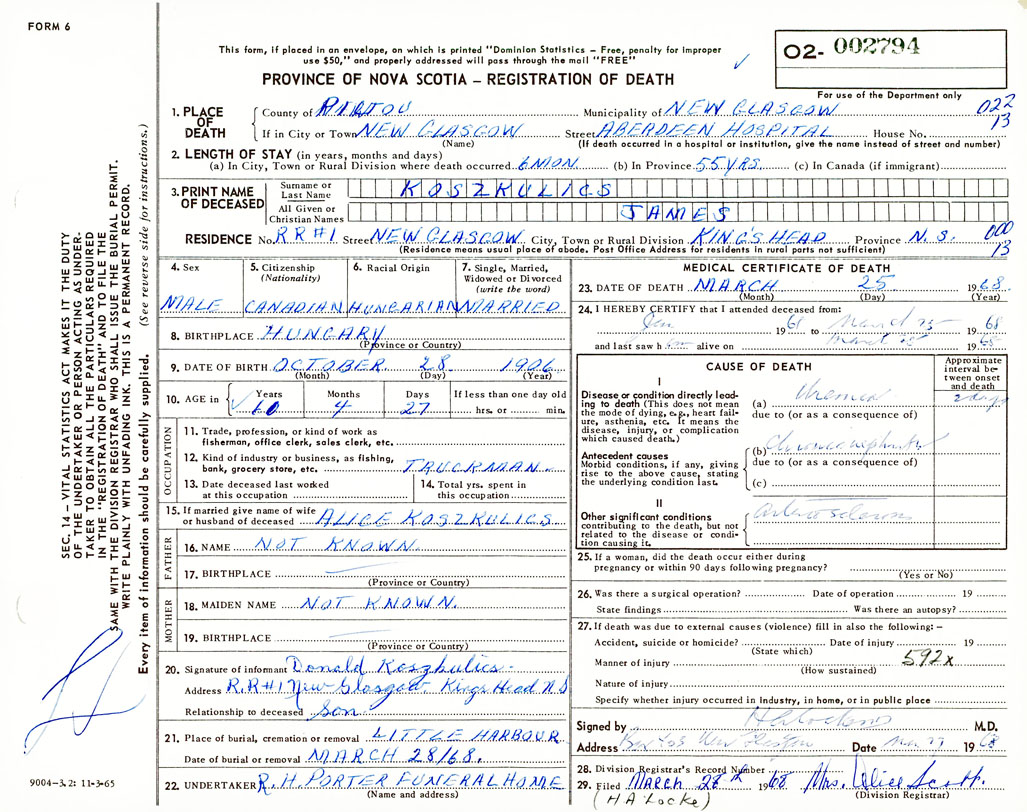 FORM 6
This form, if placed in an envelope, on which is printed "Dominion Statistics – Free, penalty for improper
use $50," and properly addressed will pass through the mail "FREE"
O2- 002794
PROVINCE OF NOVA SCOTIA – REGISTRATION OF DEATH
For use of the Department only
SEC. 14 – VITAL STATISTICS ACT MAKES IT THE DUTY
OF THE UNDERTAKER OR PERSON ACTING AS UNDER-
TAKER TO OBTAIN ALL THE PARTICULARS REQUIRED
IN THE "REGISTRATION OF DEATH" AND TO FILE THE
SAME WITH THE DIVISION REGISTRAR WHO SHALL ISSUE THE BURIAL PERMIT.
WRITE PLAINLY WITH UNFADING INK. THIS IS A PERMANENT RECORD.
Every item of information should be carefully supplied. (See reverse side for instructions.)
1. PLACE OF DEATH
County of PICTOU Municipality of NEW GLASGOW 022
If in City or Town NEW GLASGOW Street ABERDEEN HOSPITAL House No. 13
(Name) (If death occurred in a hospital or institution, give the name instead of street and number)
2. LENGTH OF STAY (in years, months and days)
(a) In City, Town or Rural Division where death occurred 6 MON. (b) In Province 55 YRS. (c) In Canada (if immigrant)
3. PRINT NAME OF DECEASED
Surname or Last Name KOSZKULICS
All Given or Christian Names JAMES
RESIDENCE No. RR#1 Street NEW GLASGOW City, Town or Rural Division KING'S HEAD Province N.S. 000
(Residence means usual place of abode. Post Office Address for residents in rural parts not sufficient) 13
4. Sex
MALE
5. Citizenship
(Nationality)
CANADIAN
6. Racial Origin
HUNGARIAN
7. Single, Married,
Widowed or Divorced
(write the word)
MARRIED
8. BIRTHPLACE HUNGARY
(Province or Country)
9. DATE OF BIRTH OCTOBER 28 1906
(Month) (Day) (Year)
10. AGE in Years Months Days If less than one day old
4 27 hrs. or min.
OCCUPATION
11. Trade, profession, or kind of work as
fisherman, office clerk, sales clerk, etc.
12. Kind of industry or business, as fishing,
bank, grocery store, etc. TRUCKMAN
13. Date deceased last worked
at this occupation
14. Total yrs. spent in
this occupation
15. If married give name of wife
or husband of deceased ALICE KOSZKULICS
FATHER
16. NAME NOT KNOWN
17. BIRTHPLACE
(Province or Country)
MOTHER
18. MAIDEN NAME NOT KNOWN.
19. BIRTHPLACE
(Province or Country)
20. Signature of informant Donald Koszkulics
Address R.R#1 New Glasgow. Kings Head N.S
Relationship to deceased son
21. Place of burial, cremation or removal LITTLE HARBOUR
Date of burial or removal MARCH 28/68.
22. UNDERTAKER R.H. PORTER FUNERAL HOME
(Name and address)
9004-3.2: 11-3-65
MEDICAL CERTIFICATE OF DEATH
23. DATE OF DEATH MARCH 25 1968
(Month) (Day) (Year)
24. I HEREBY CERTIFY that I attended deceased from:
Jan 1961 to March 25 1968
and last saw h alive on March 25 1968
CAUSE OF DEATH
Approximate
interval be-
tween onset
and death
I
Disease or condition directly lead-
ing to death (This does not mean
the mode of dying, e.g., heart fail-
ure, asthenia, etc. It means the
disease, injury, or complication
which caused death.)
(a) Uremia 2 days
due to (or as a consequence of)
Antecedent causes
Morbid conditions, if any, giving
rise to the above cause, stating
the underlying condition last.
(b) Chronic nephritis
due to (or as a consequence of)
(c)
II
Other significant conditions
contributing to the death, but not
related to the disease or condi-
tion causing it.
arteriosclerosis
25. If a woman, did the death occur either during
pregnancy or within 90 days following pregnancy?
(Yes or No)
26. Was there a surgical operation? Date of operation 19
State findings Was there an autopsy?
27. If death was due to external causes (violence) fill in also the following: –
Accident, suicide or homicide? Date of injury 19
(State which)
Manner of injury 592x
(How sustained)
Nature of injury
Specify whether injury occurred in industry, in home, or in public place
Signed by M.D.
Address Box New Date 1968
28. Division Registrar's Record Number
29. Filed March 28th 1968 Mrs. Alice Scott.
(Division Registrar)
(H A Locke)